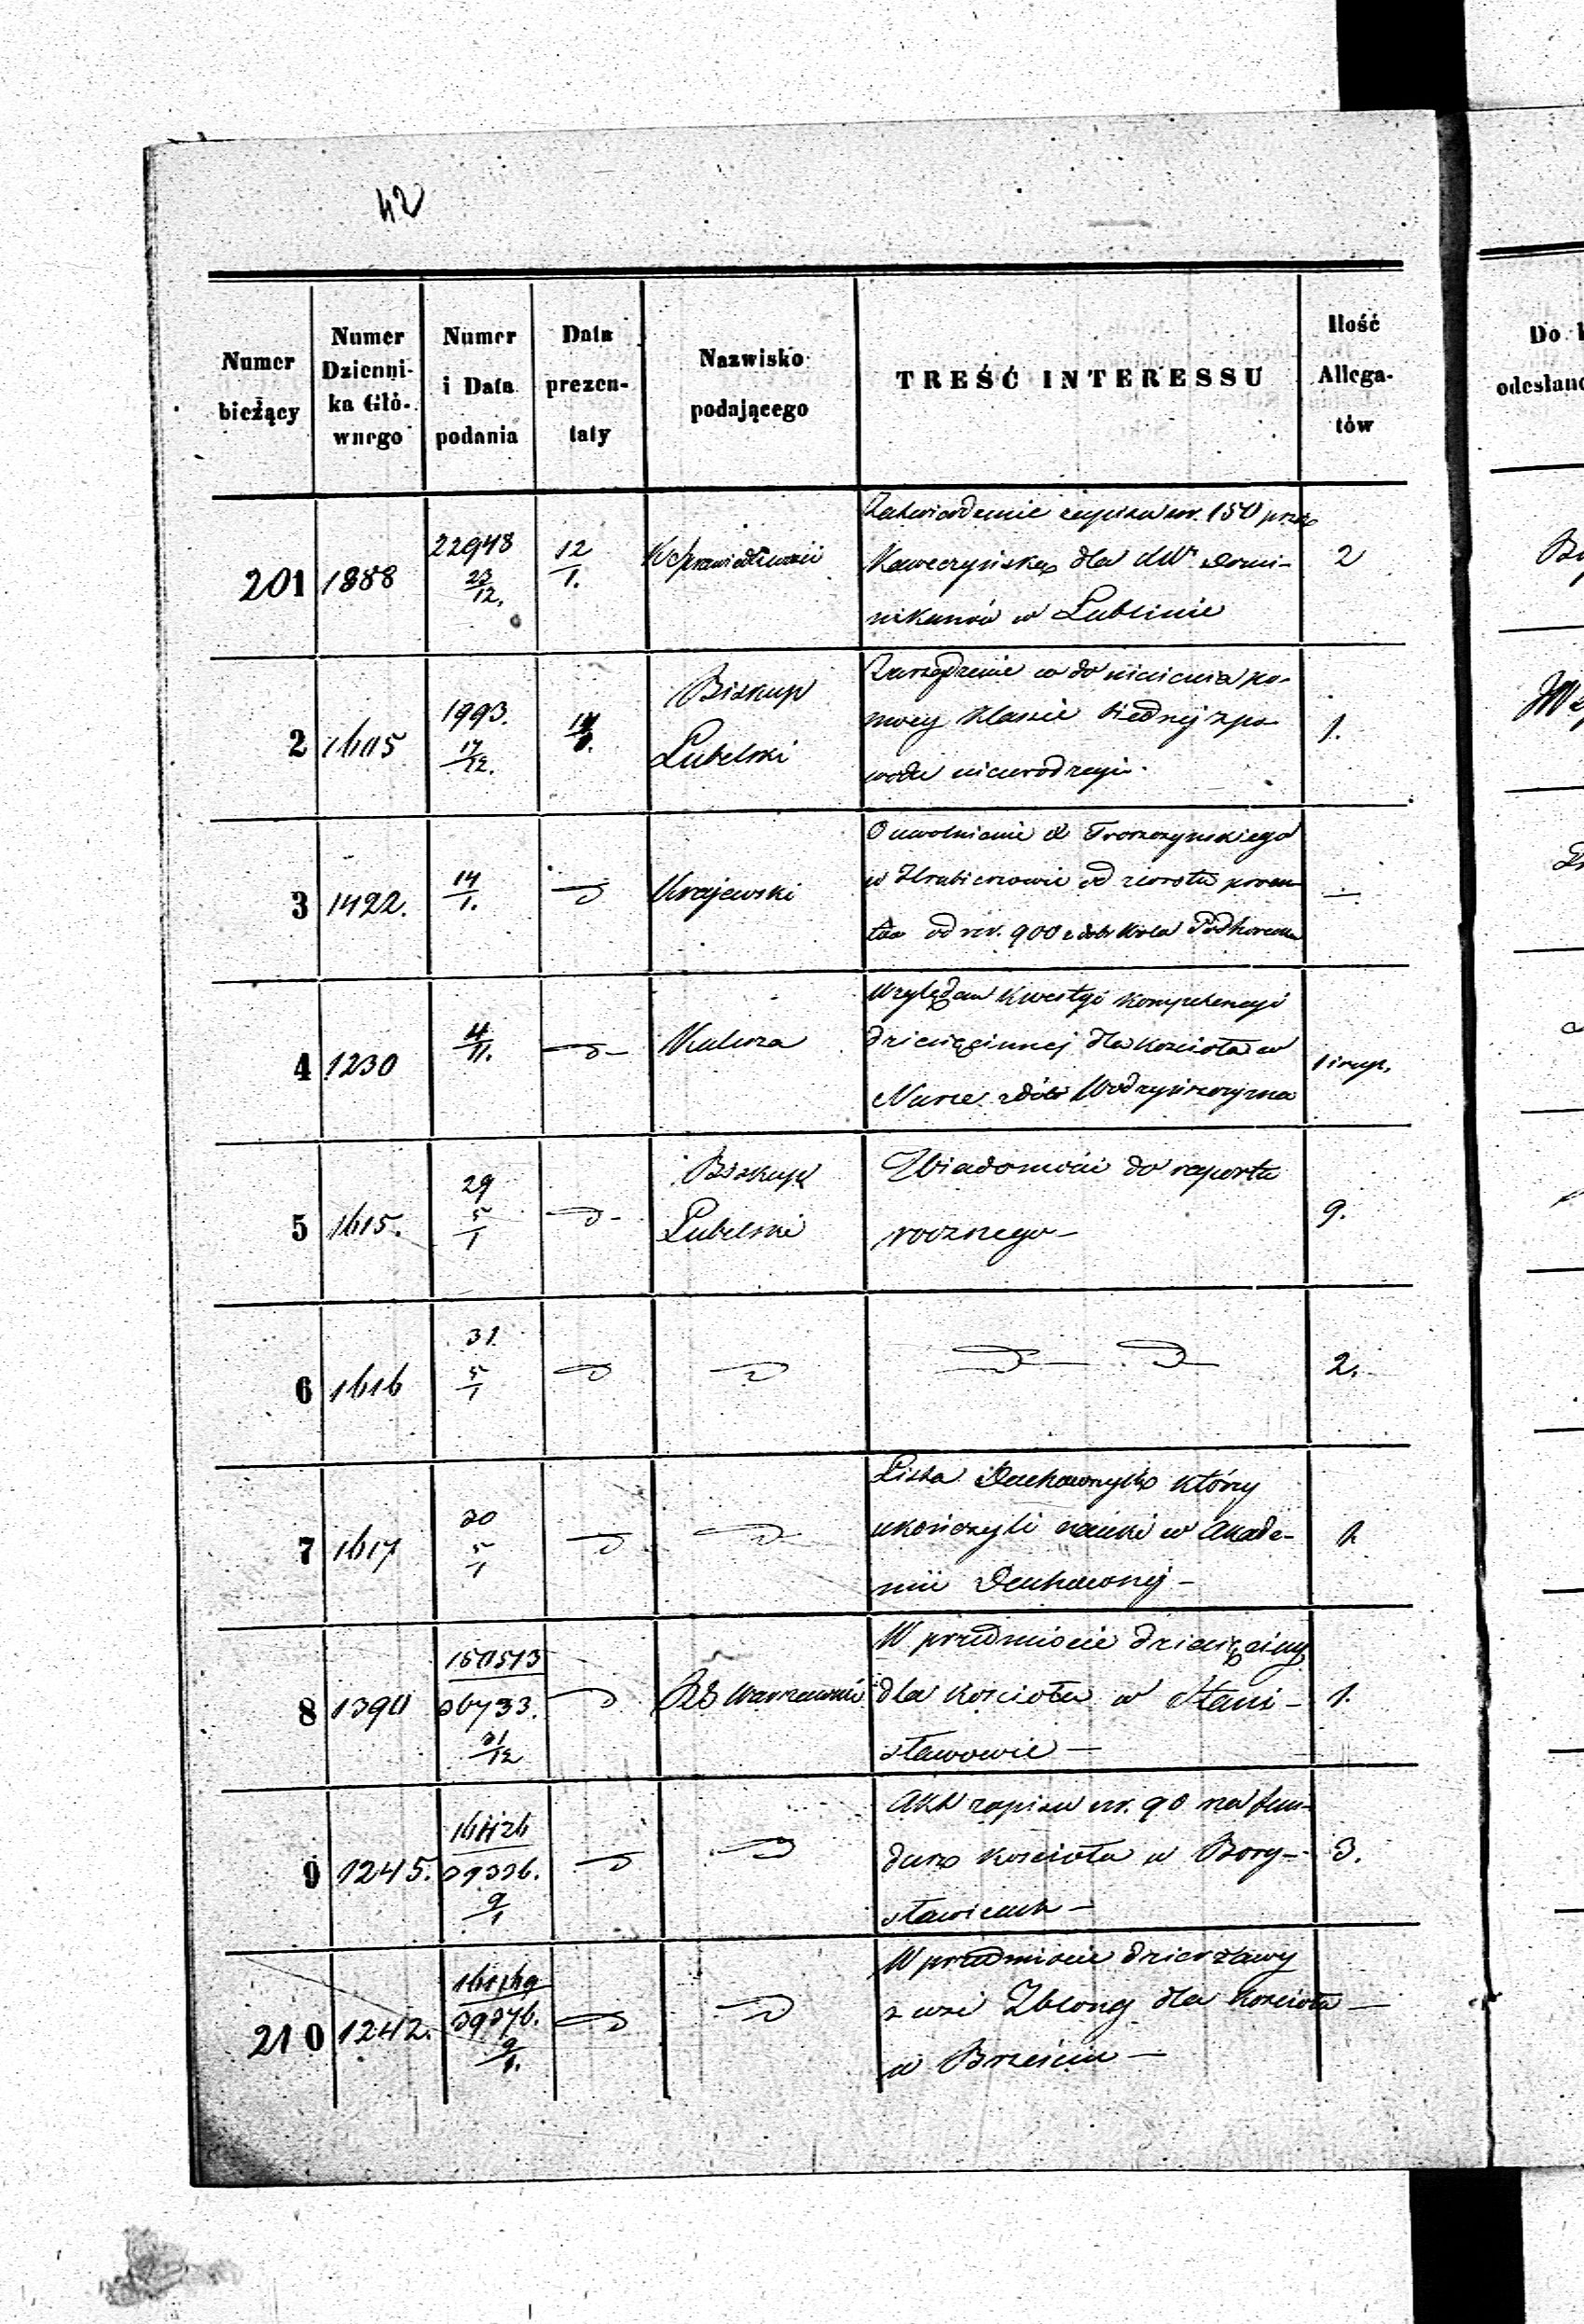 42
Numer bieżący
Numer Dzienni-ka Głó-wnego
Numer i Data podania
Data prezen-taty
Nazwisko podającego
TREŚĆ INTERESSU
Ilość Allega-tów
Do
odesłano
201 1888 22948 23/12. 12/1. 2
Zatwierdzenie zapisu rsr. 150 przez
dla Domi-
nikanów w Lublinie
2 1605 1993. 17/12. Biskup Lubelski 1.
Zarządzenie co do niesienia po-
mocy klassie biednej z po-
wodu nieurodzaju.
3 1422. 14/1. Krajewski —
O uwolnienie X Troszczyńskiego
w Hrubieszowie od zwrotu procen-
tu od rsr. 900 z dóbr Wola
4 1230 4/11. Kulesza 1 i map.
Względem kwestyi kompetencyi
dziesięcinnej dla kościoła w
Nurze z dóbr
5 1615. 29 5/1 Biskup Lubelski 9.
Wiadomości do raportu
rocznego —
6 1616 31. 5/1 2.
7 1617 30 5/1 1.
Lista Duchownych którzy
ukończyli nauki w Akade-
mii Duchownej —
8 1390 36733. 31/12 RG Warszawski 1.
W przedmiocie dziesięciny
dla kościoła w Stani-
sławowie —
9 1245. 39326. 9/1 3.
Akt zapisu rsr. 90 na fun-
dusz kościoła w Bory-
sławicach —
210 1242. 39376. 9/1.
W przedmiocie dzierżawy
z wsi dla kościoła
w Brześciu —